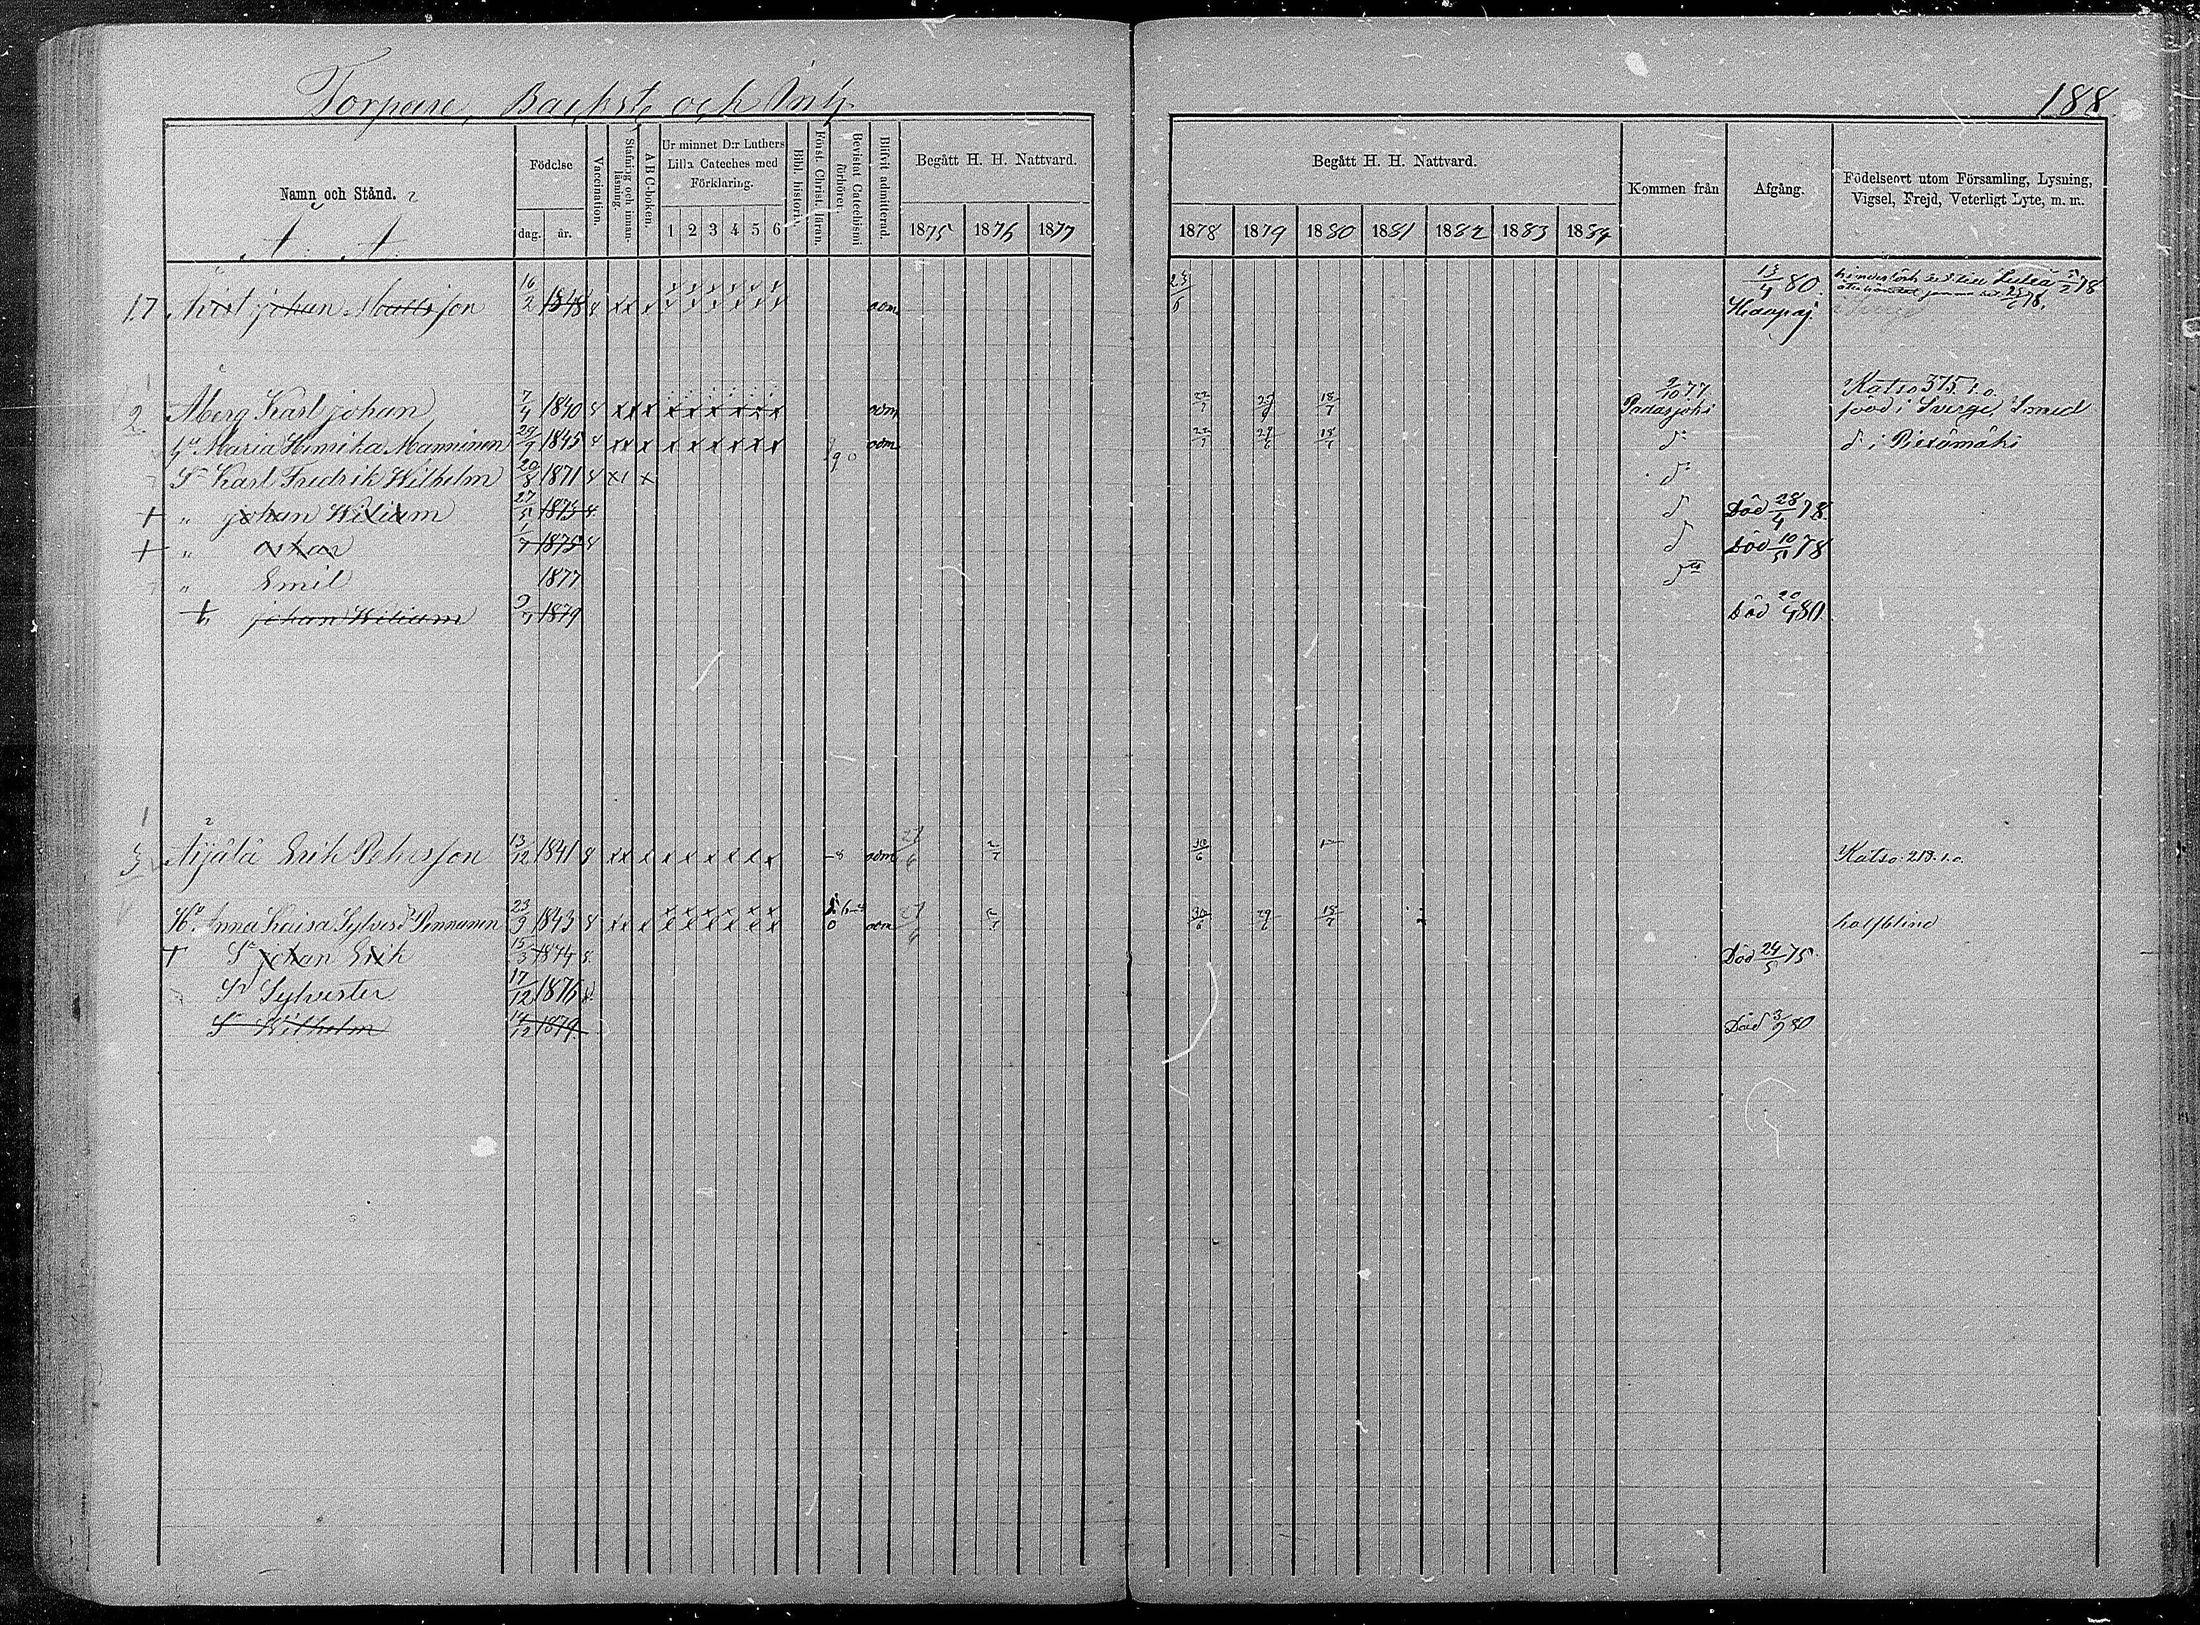 Torpare, Backst. och Inh.
188
Namn och Stånd.
Födelse
dag.
år.
Vaccination.
Stafning och innan-läsning.
A B C-boken.
Ur minnet D:r Luthers Lilla Cateches med Förklaring.
1 2 3 4 5 6
Bibl. historia.
Först. Christ. läran.
Bevistat Catechismi förhören.
Blifvit admitterad.
Begått H. H. Nattvard.
1875 1876 1877
Begått H. H. Nattvard.
1878 1879 1880 1881 1882 1883 1884
Kommen från
Afgång.
Födelseort utom Församling, Lysning, Vigsel, Frejd, Veterligt Lyte, m. m.
A. A.
17 Johan Mattsson 16/2 1848 adm 23/6 13/4 80. Haapaj.
2 Åberg Karl Johan 7/4 1840 adm 22/7 18/7 2/10 77 Padasjoki Katso 375 s.o. född i Sverge, Smed
Maria Himika Manninen 1845 adm 22/7 29/6 18/7 do do i Pieksämäki
Sn Karl Fredrik Wilhelm 20/8 1871 do
+ " Johan Wiliam 27/5 1873 do Död 28/4 78.
+ " Oskar 1/7 1875 do Död 10/5 78
" Emil 1877 do
+ " Johan Wiliam 9/4 1879 Död 20/4 80.
3 Äijälä Erik Petersson 13/12 1841 adm 2/7 30/6 Katso 213 s.o.
Hu Anna Kaisa Sylvesd. Pennanen 23/9 1843 adm 2/7 30/6 29/6 18/7 halfblind
+ Sn Johan Erik 15/3 1874 Död 24/5 75.
Sn Sylvester 17/12 1876
Sn Wilhelm 14/12 1879 Död 3/9 80